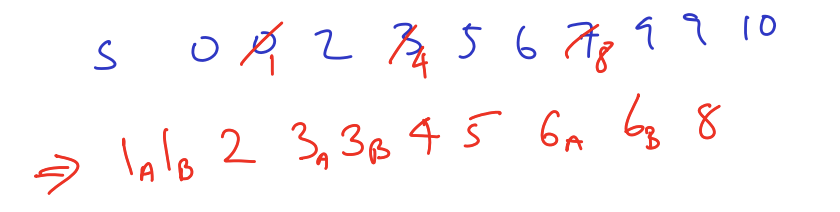 S 0 0 1 2 3 4 5 6 7 8 9 9 10
⇒ 1A 1B 2 3A 3B 4 5 6A 6B 8